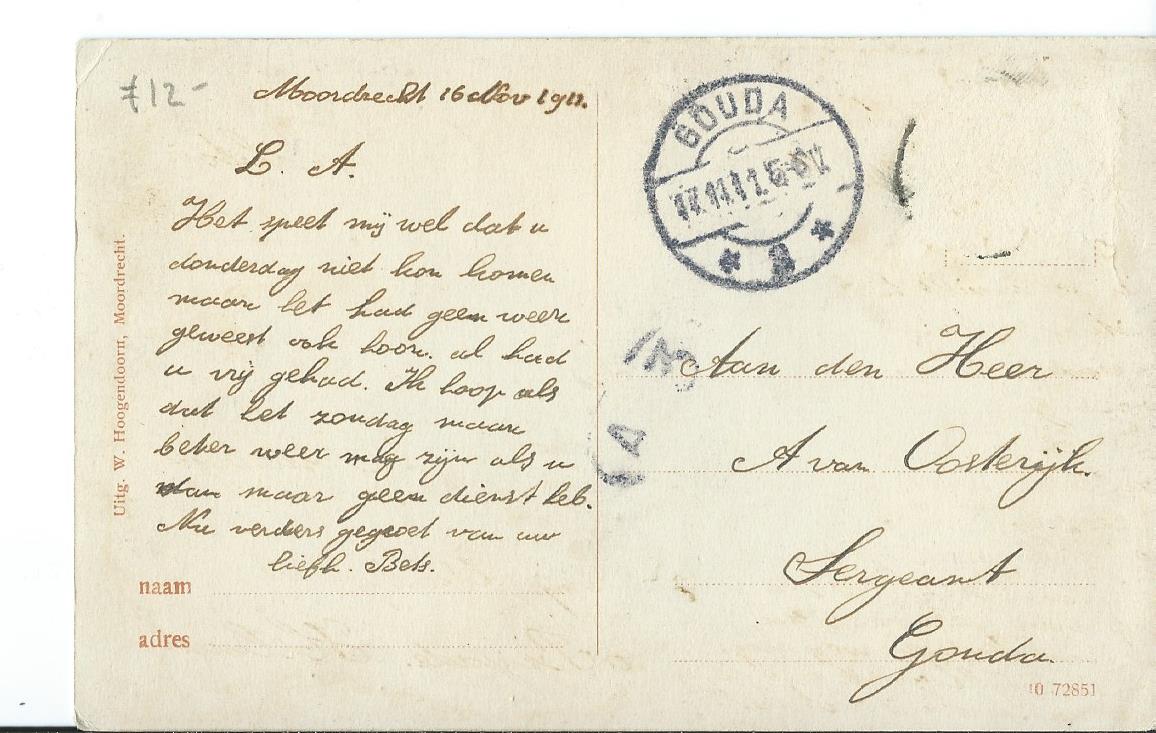 712-
Moordrecht 16 Nov 1911.
L. A.
Het speet mij wel dat u
donderdag niet kon komen
maar het had geen weer
geweest ook hoor. al had
u vrij gehad. Ik hoop als
dat het zondag maar
beter weer mag zijn als u
dan maar geen dienst heb.
Nu verders gegroet van uw
liefh. Bets.
naam
adres
Uitg. W. Hoogendoorn, Moordrecht.
GOUDA
17.11.11.5-6 N
Aan den Heer
A van Oosterijk.
Sergeant
Gouda
10 72851